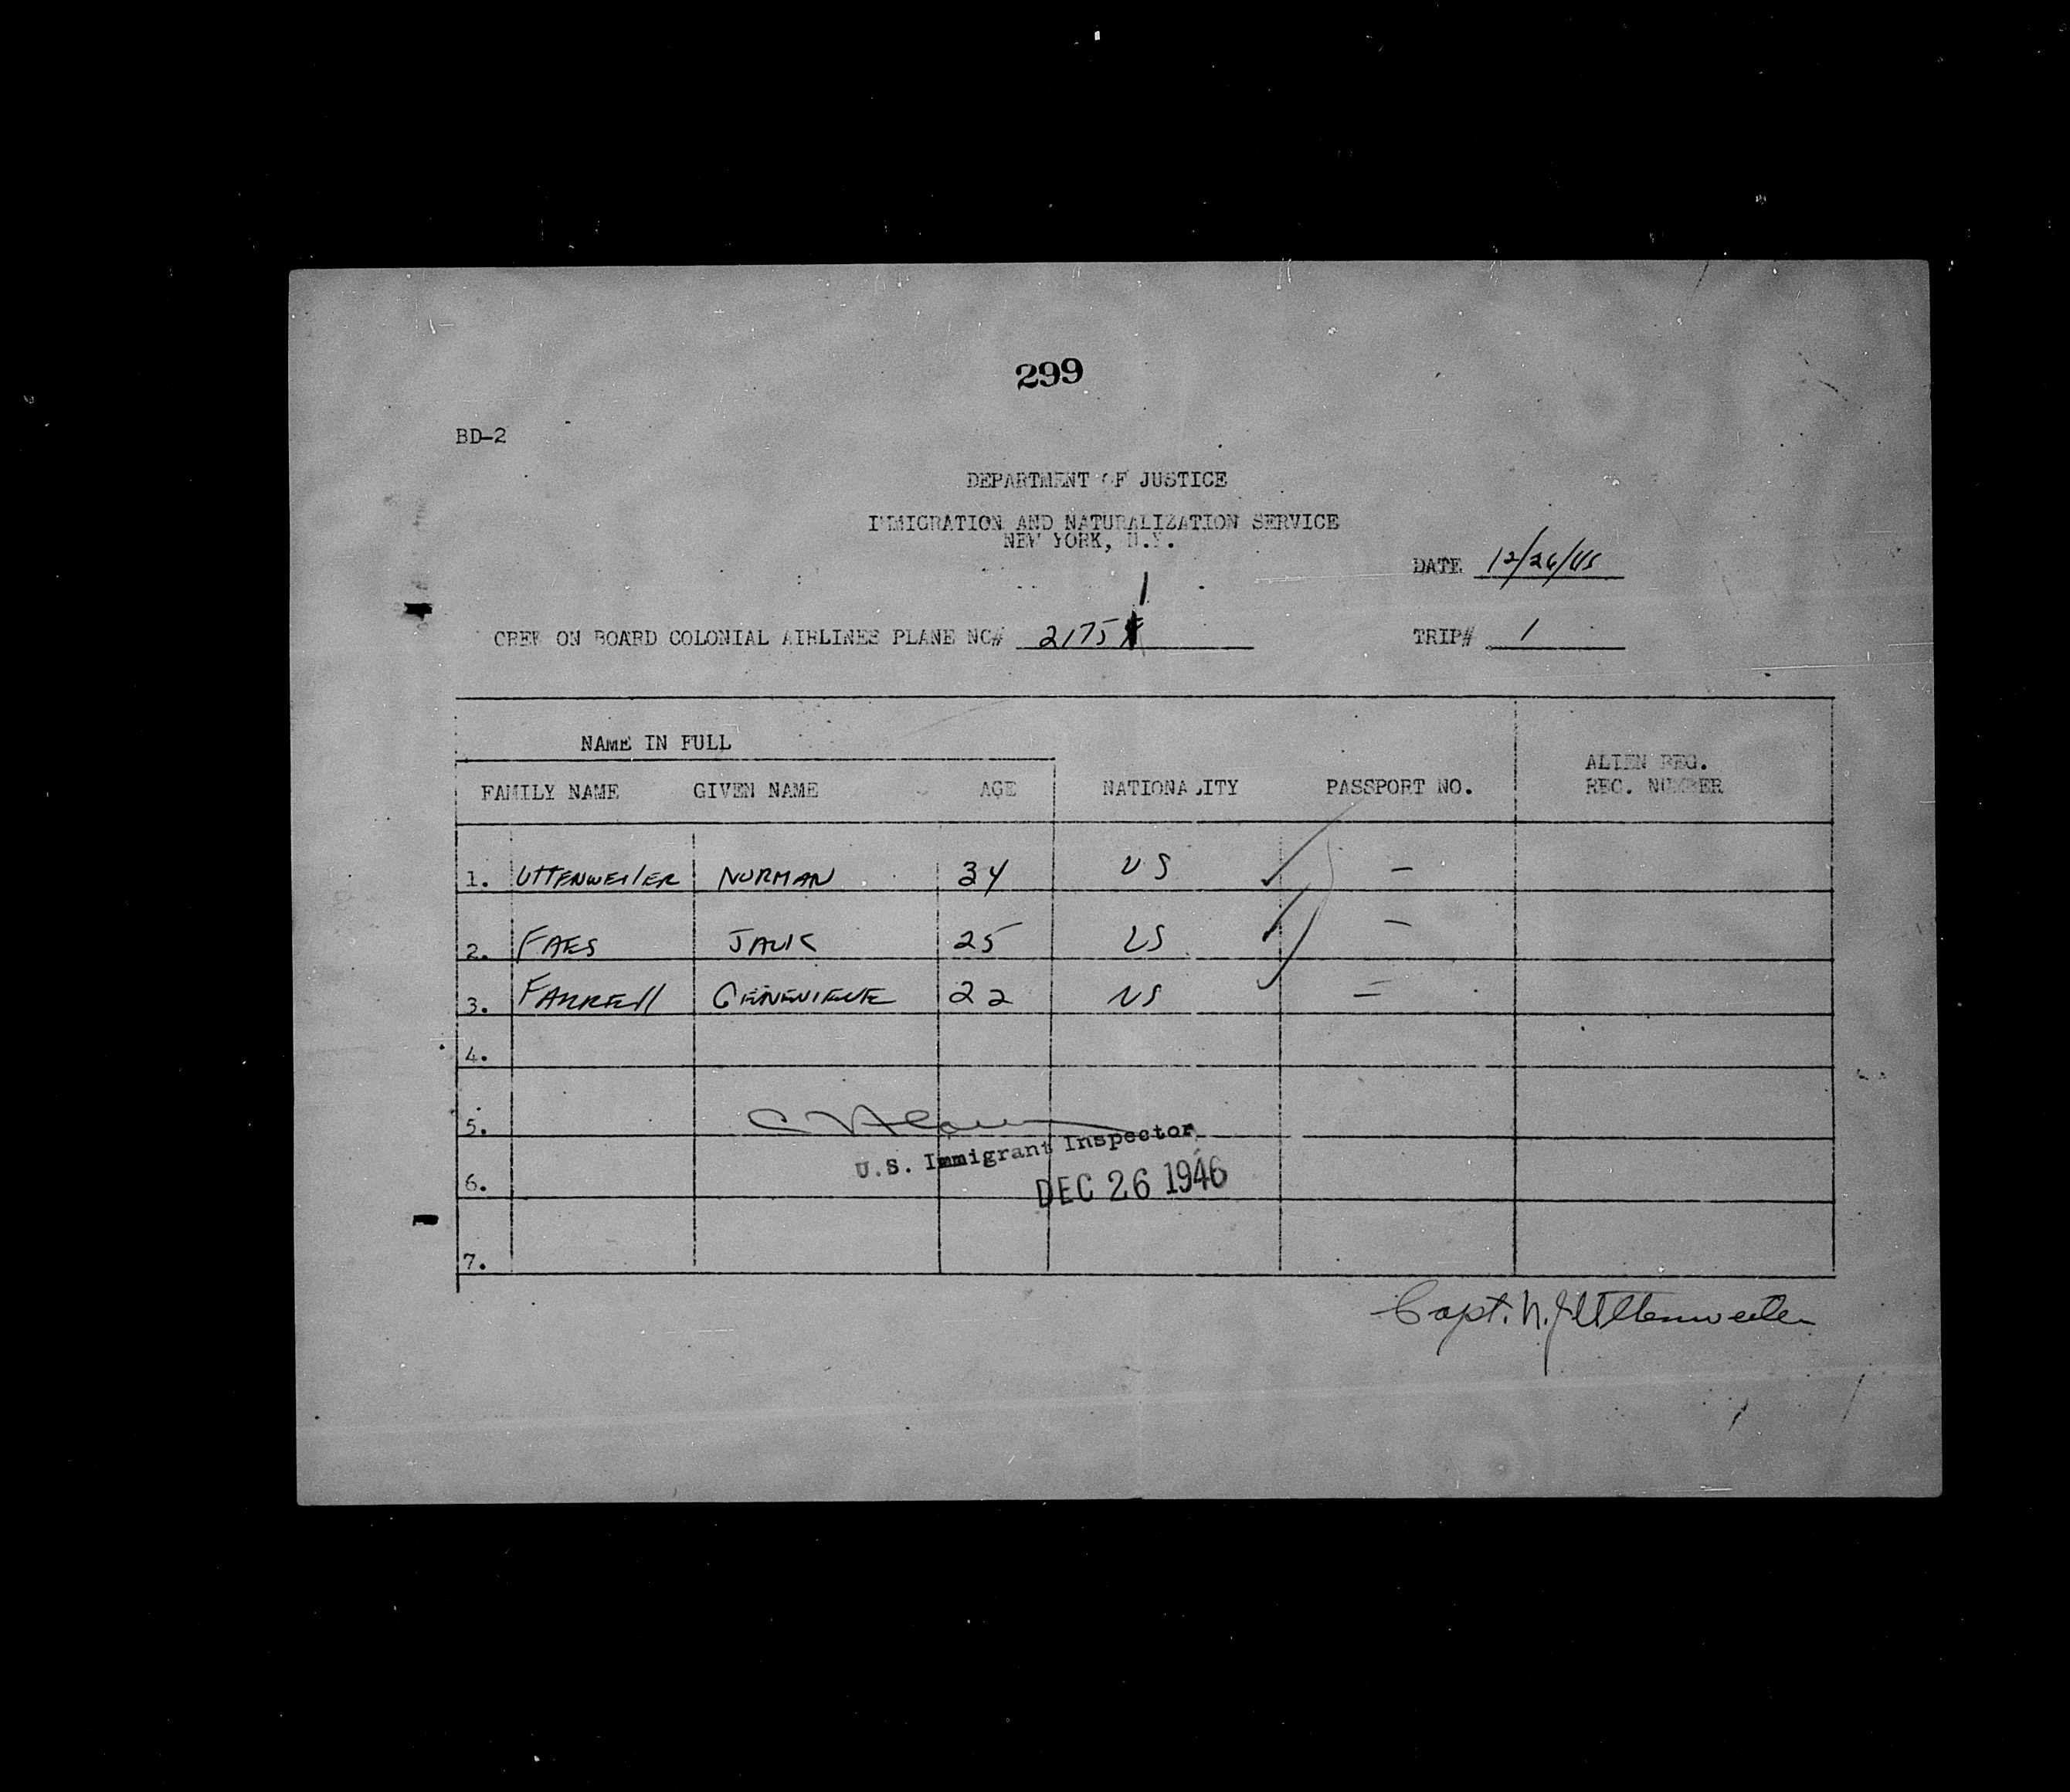 299
BD-2
DEPARTMENT OF JUSTICE
IMMIGRATION AND NATURALIZATION SERVICE
NEW YORK, N.Y.
DATE 12/26/
1
CREW ON BOARD COLONIAL AIRLINES PLANE NC# 2175 TRIP# 1
NAME IN FULL
FAMILY NAME GIVEN NAME AGE NATIONALITY PASSPORT NO. ALIEN REG. REC. NUMBER
1. UTTENWEILER NORMAN 34 US –
2. FAES JACK 25 US –
3. FARRELL GENEVIEVE 22 US =
4.
5.
U.S. Immigrant Inspector
6. DEC 26 1946
7.
Capt. N.J. Uttenweiler